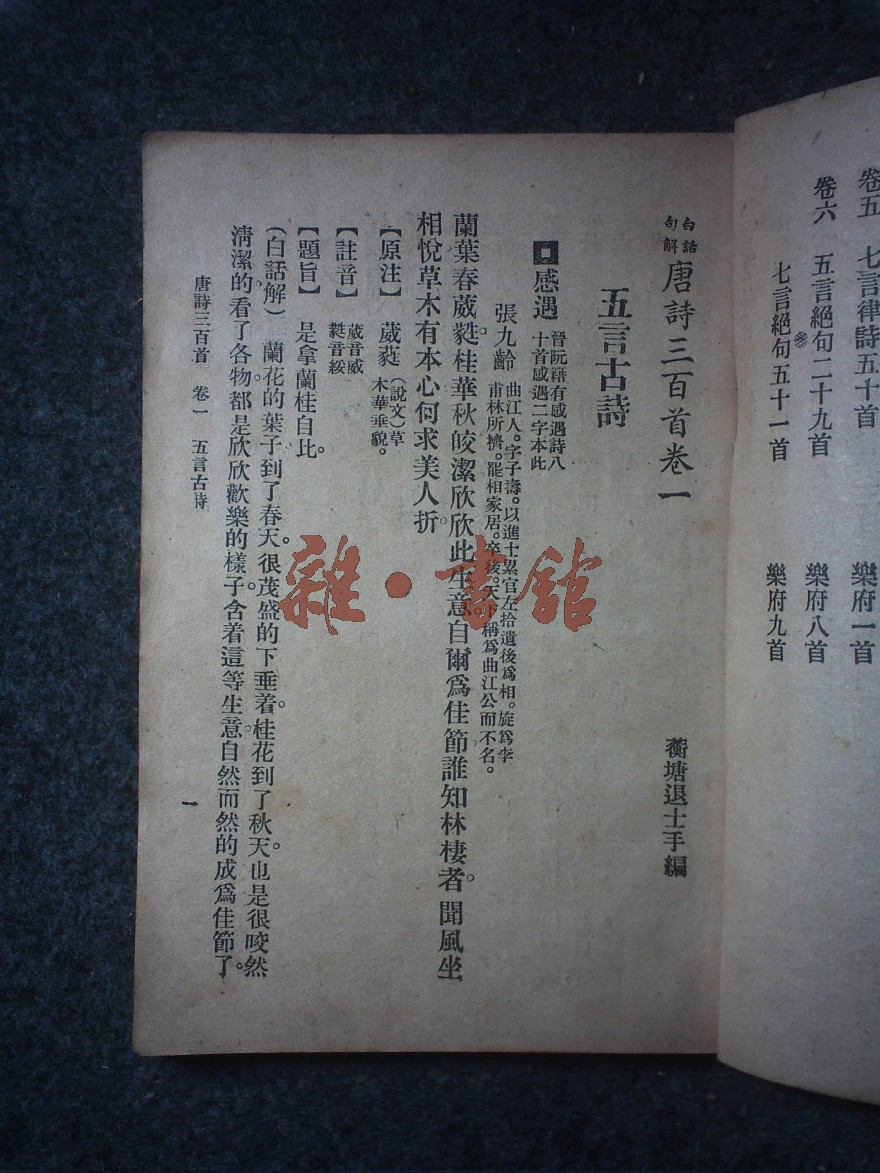 卷五　七言律詩五十首　樂府一首
卷六　五言絕句二十九首　樂府八首
七言絕句五十一首　樂府九首
白話句解 唐詩三百首卷一　蘅塘退士手編
五言古詩
感遇 晉阮籍有感遇詩八
十首感遇二字本此
張九齡 曲江人。字子壽。以進士累官左拾遺後爲相。旋爲李
甫林所擠。罷相家居。卒後。天下稱爲曲江公而不名。
蘭葉春葳蕤。桂華秋皎潔欣欣此生意自爾爲佳節誰知林棲者。聞風坐
相悅草木有本心何求美人折
【原注】葳蕤（說文）草
木華垂貌。
【註音】葳音威
蕤音綏
【題旨】是拿蘭桂自比。
（白話解）蘭花的葉子到了春天。很茂盛的下垂着。桂花到了秋天。也是很皎然
淸潔的。看了各物都是欣欣歡樂的樣子。含着這等生意。自然而然的成爲佳節了。
唐詩三百首　卷一　五言古詩
一
雜·書館